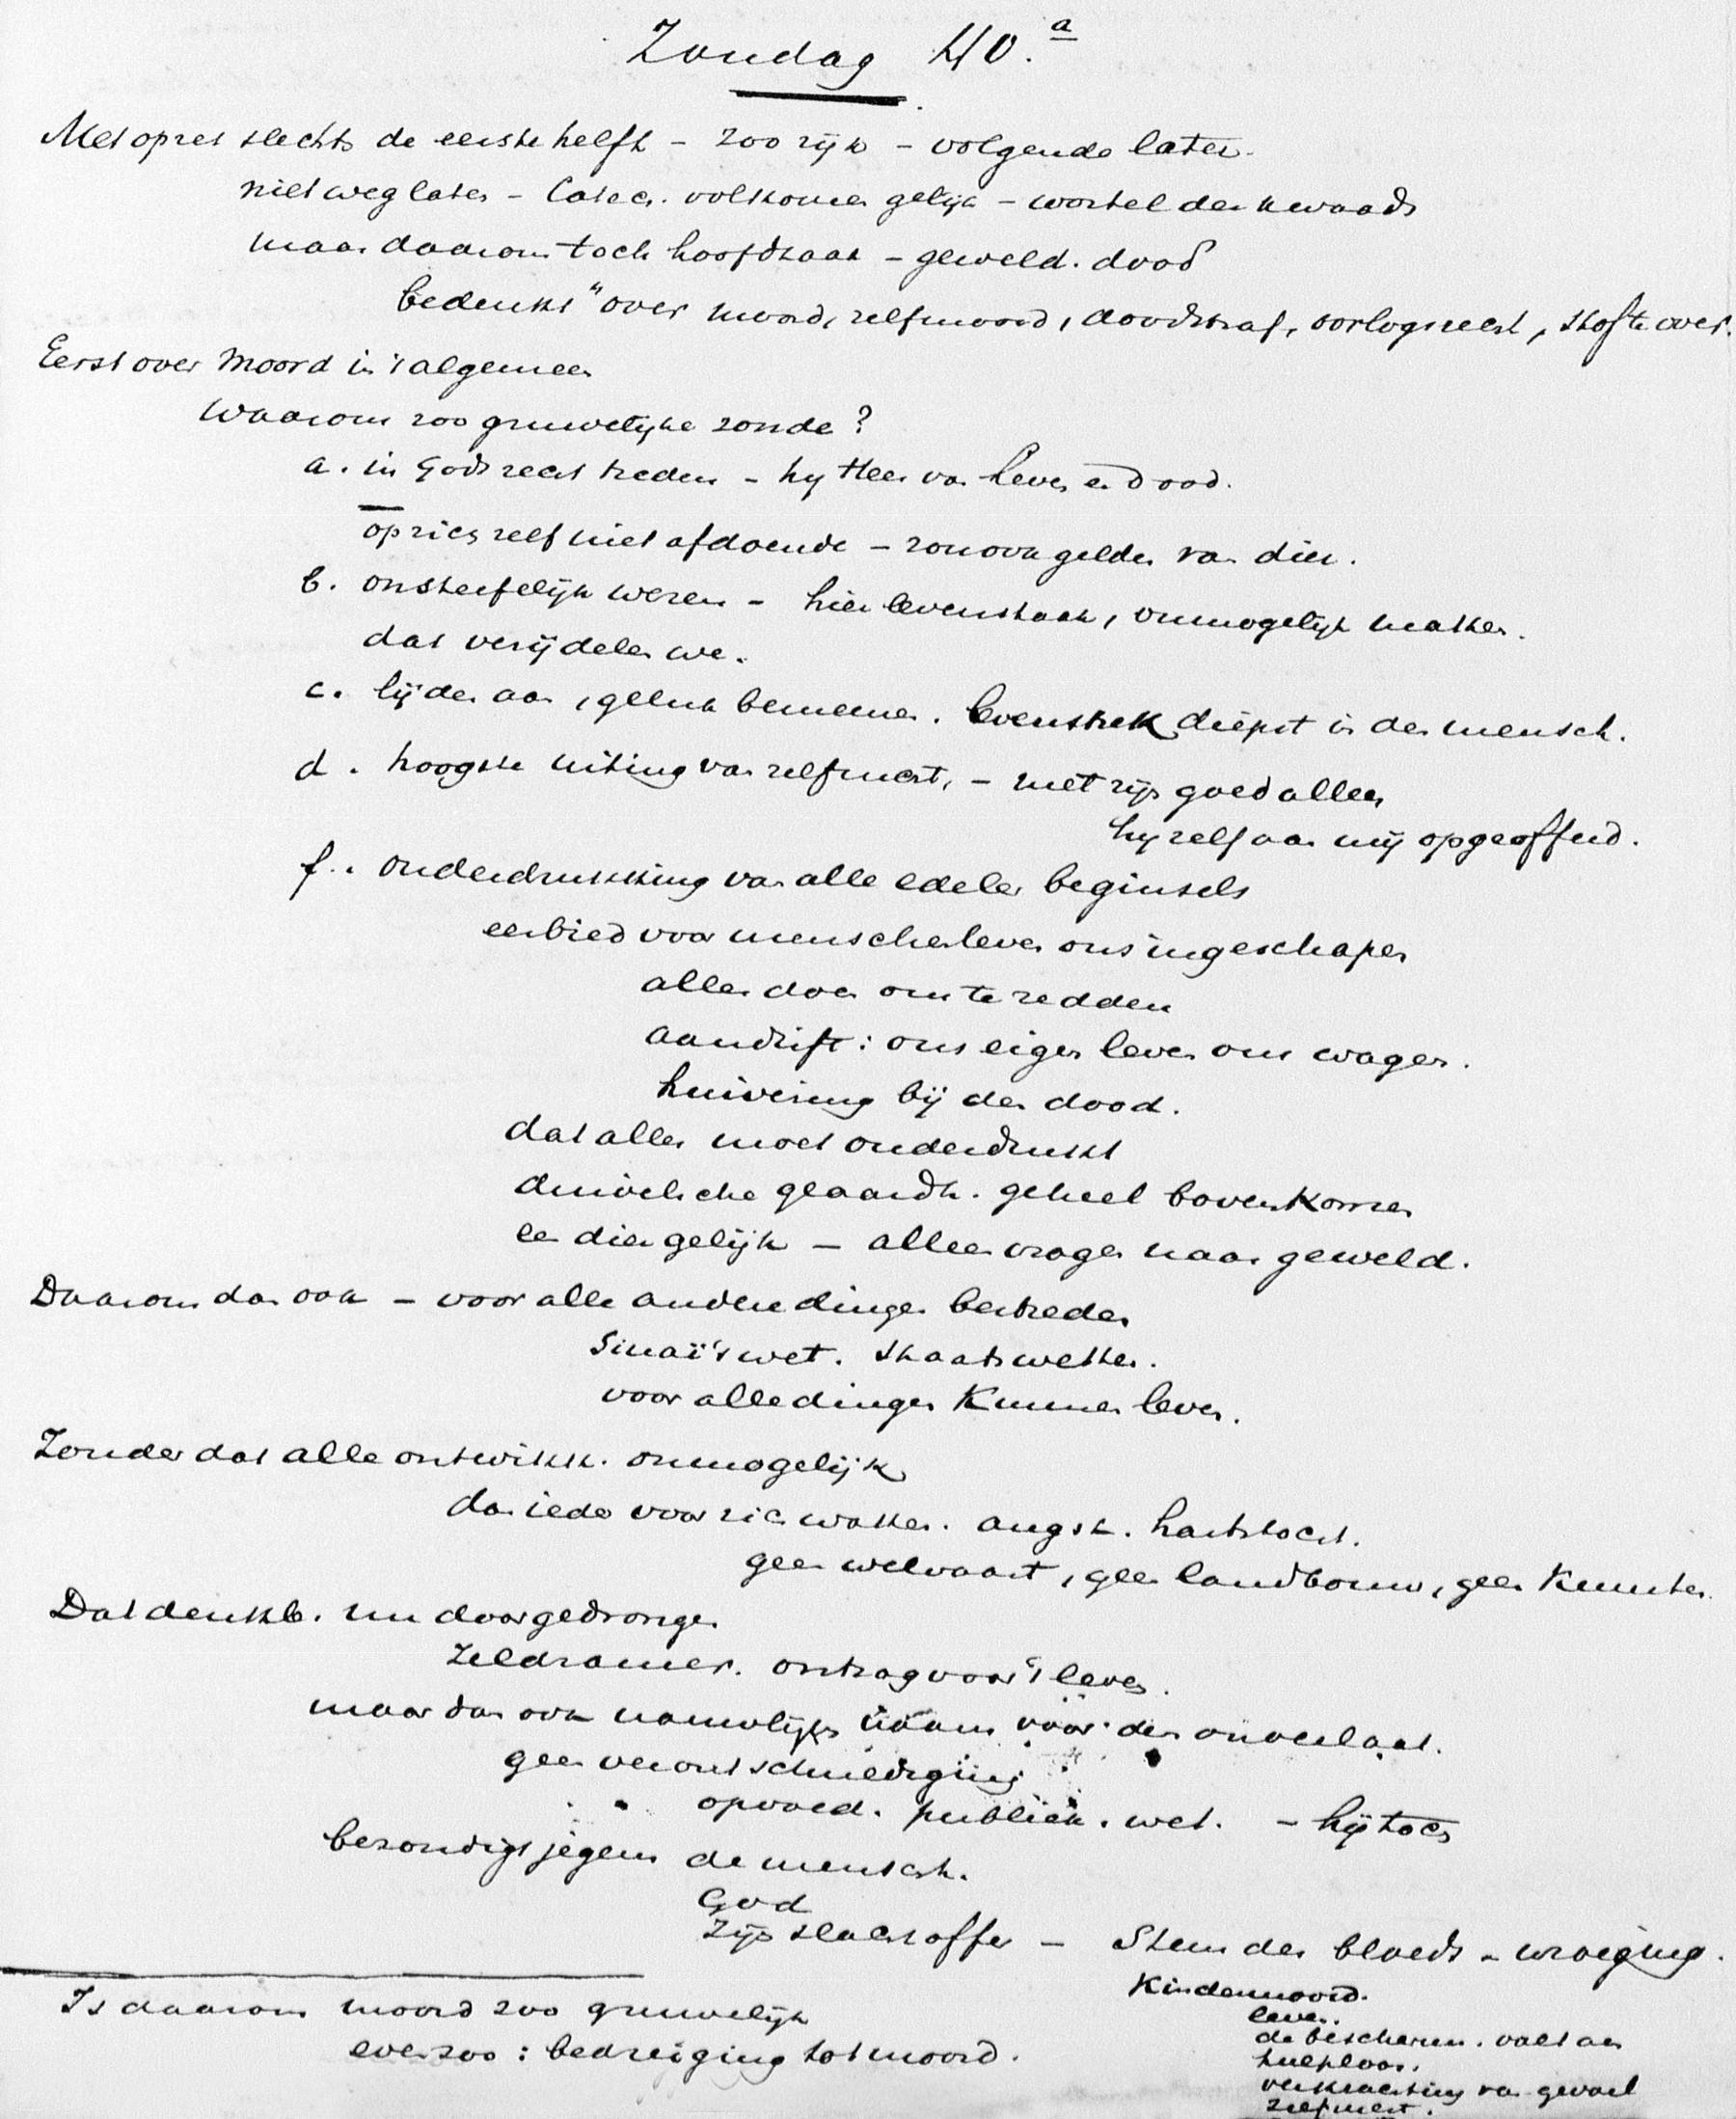 Zondag 40.a
Met opzet slechts de eerste helft - zoo rijk - volgende later.
niet weglaten - Catec. volkomen gelijk - wortel des kwaads
maar daarom toch hoofdzaak - geweld. dood
bedenkt" over moord, zelfmoord, doodstraf, oorlogsrecht, stof te over.
Eerst over Moord in 't algemeen
Waarom zoo gruwelijke zonde?
a. in Gods recht treden - hy Heer van leven en dood.
op zich zelf niet afdoende - zou ook gelden van dier.
b. onsterfelijk wezen - hier levenstaak, onmogelijk maken.
dat verijdelen we.
c. lijden aan, geluk benemen. levenstrek diepst in den mensch.
d. hoogste uiting van zelfzucht, - niet zijn goed alleen
hy zelf aan mij opgeofferd.
f. onderdrukking van alle edeler beginsels
eerbied voor menschenleven ons ingeschapen
alles doen om te redden
aandrift: ons eigen leven om wagen.
huivering bij den dood.
dat alles moet onderdrukt
duivelsche geaardh. geheel bovenkomen
en dier gelijk - alleen vragen naar geweld.
Daarom dan ook - voor alle andere dingen bestreden
Sinaï's wet. Staatswetten.
voor alle dingen kunnen leven.
Zonder dat alle ontwikk. onmogelijk
dan ieder voor zich waken. angst. hartstocht.
geen welvaart, geen landbouw, geen kunsten.
Dat denkb. nu doorgedrongen
Zeldzamer. ontzag voor 't leven.
maar dan ook namelijk naam voor den onverlaat.
geen verontschuldiging
opvoed. publiek. wet. - hij toch
bezondigt jegens de mensch.
God
zijn slachtoffer - Stem des bloeds - wroeging.
Kindermoord.
leven.
de bescherm. valt aan
hulploos.
verkrachting van gevoel
zelfzucht.
Is daarom moord zoo gruwelijk
evenzoo: bedreiging tot moord.